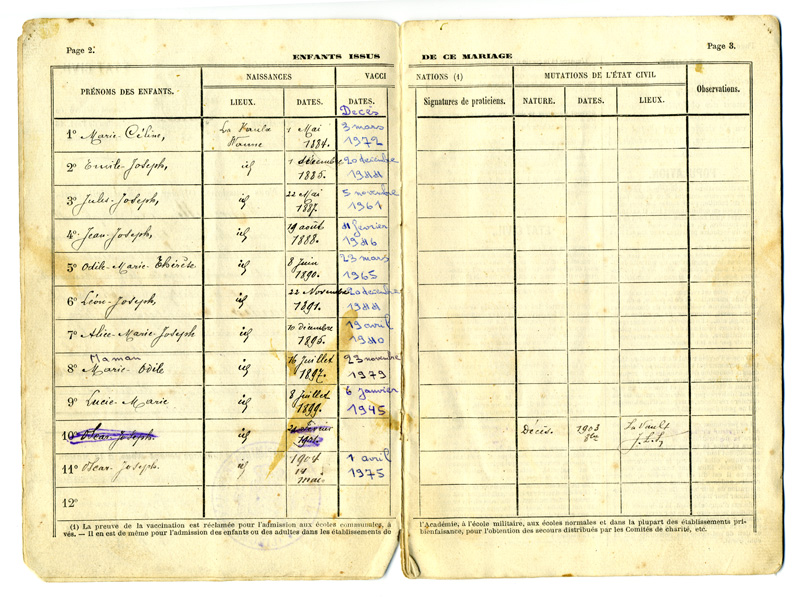 Page 2.
Page 3.
ENFANTS ISSUS DE CE MARIAGE
PRÉNOMS DES ENFANTS.
NAISSANCES
VACCI
NATIONS (1)
MUTATIONS DE L'ÉTAT CIVIL
Observations.
LIEUX.
DATES.
DATES.
Signatures de praticiens.
NATURE.
DATES.
LIEUX.
Decès
1° Marie-Céline, La 1 Mai 3 mars
1884. 1972
2° Emile-Joseph, id 1 décembre 20 decembre
1885. 1944
3° Jules-Joseph, id 22 Mai 5 novembre
1887. 1961
4° Jean-Joseph, id 19 août 11 fevrier
1888. 1946
5° Odile-Marie-Thérèse id 8 Juin 23 mars
1890. 1965
6° Léon-Joseph, id 22 Novembre 20 decembre
1891. 1944
7° Alice-Marie-Joseph id 10 décembre 19 avril
1895. 1940
Maman
8° Marie-Odile id 16 Juillet 23 novembre
1897. 1979
9° Lucie-Marie id 8 Juillet 6 janvier
1899. 1945
10° Oscar-Joseph. id Février Décès. 1903 La Vault
11° Oscar Joseph. id 1904 1 avril
14 1975
mai
12°
(1) La preuve de la vaccination est réclamée pour l'admission aux écoles communales, à
l'Académie, à l'école militaire, aux écoles normales et dans la plupart des établissements pri-
vés. — Il en est de même pour l'admission des enfants ou des adultes dans les établissements de
bienfaisance, pour l'obtention des secours distribués par les Comités de charité, etc.